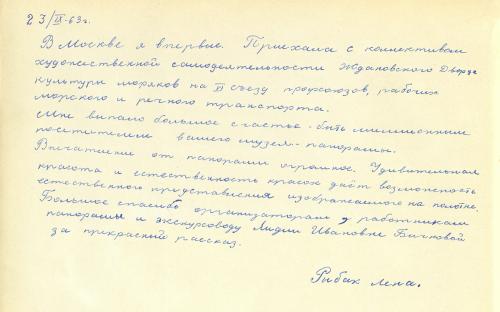 23/IX-63г.
В Москве я впервые. Приехала с коллективом
художественной самодеятельности Ждановского Дворца
культуры моряков на съезд профсоюзов, рабочих
морского и речного транспорта.
Мне выпало большое счастье - быть миллионным
посетителем вашего музея-панорамы.
Впечатление от панорамы огромное. Удивительная
красота и естественность красок даёт возможность
естественного представления изображаемого на полотне.
Большое спасибо организаторам и работникам
панорамы и экскурсоводу Лидии Ивановне Бычковой
за прекрасный рассказ.
Рыбак Лена.